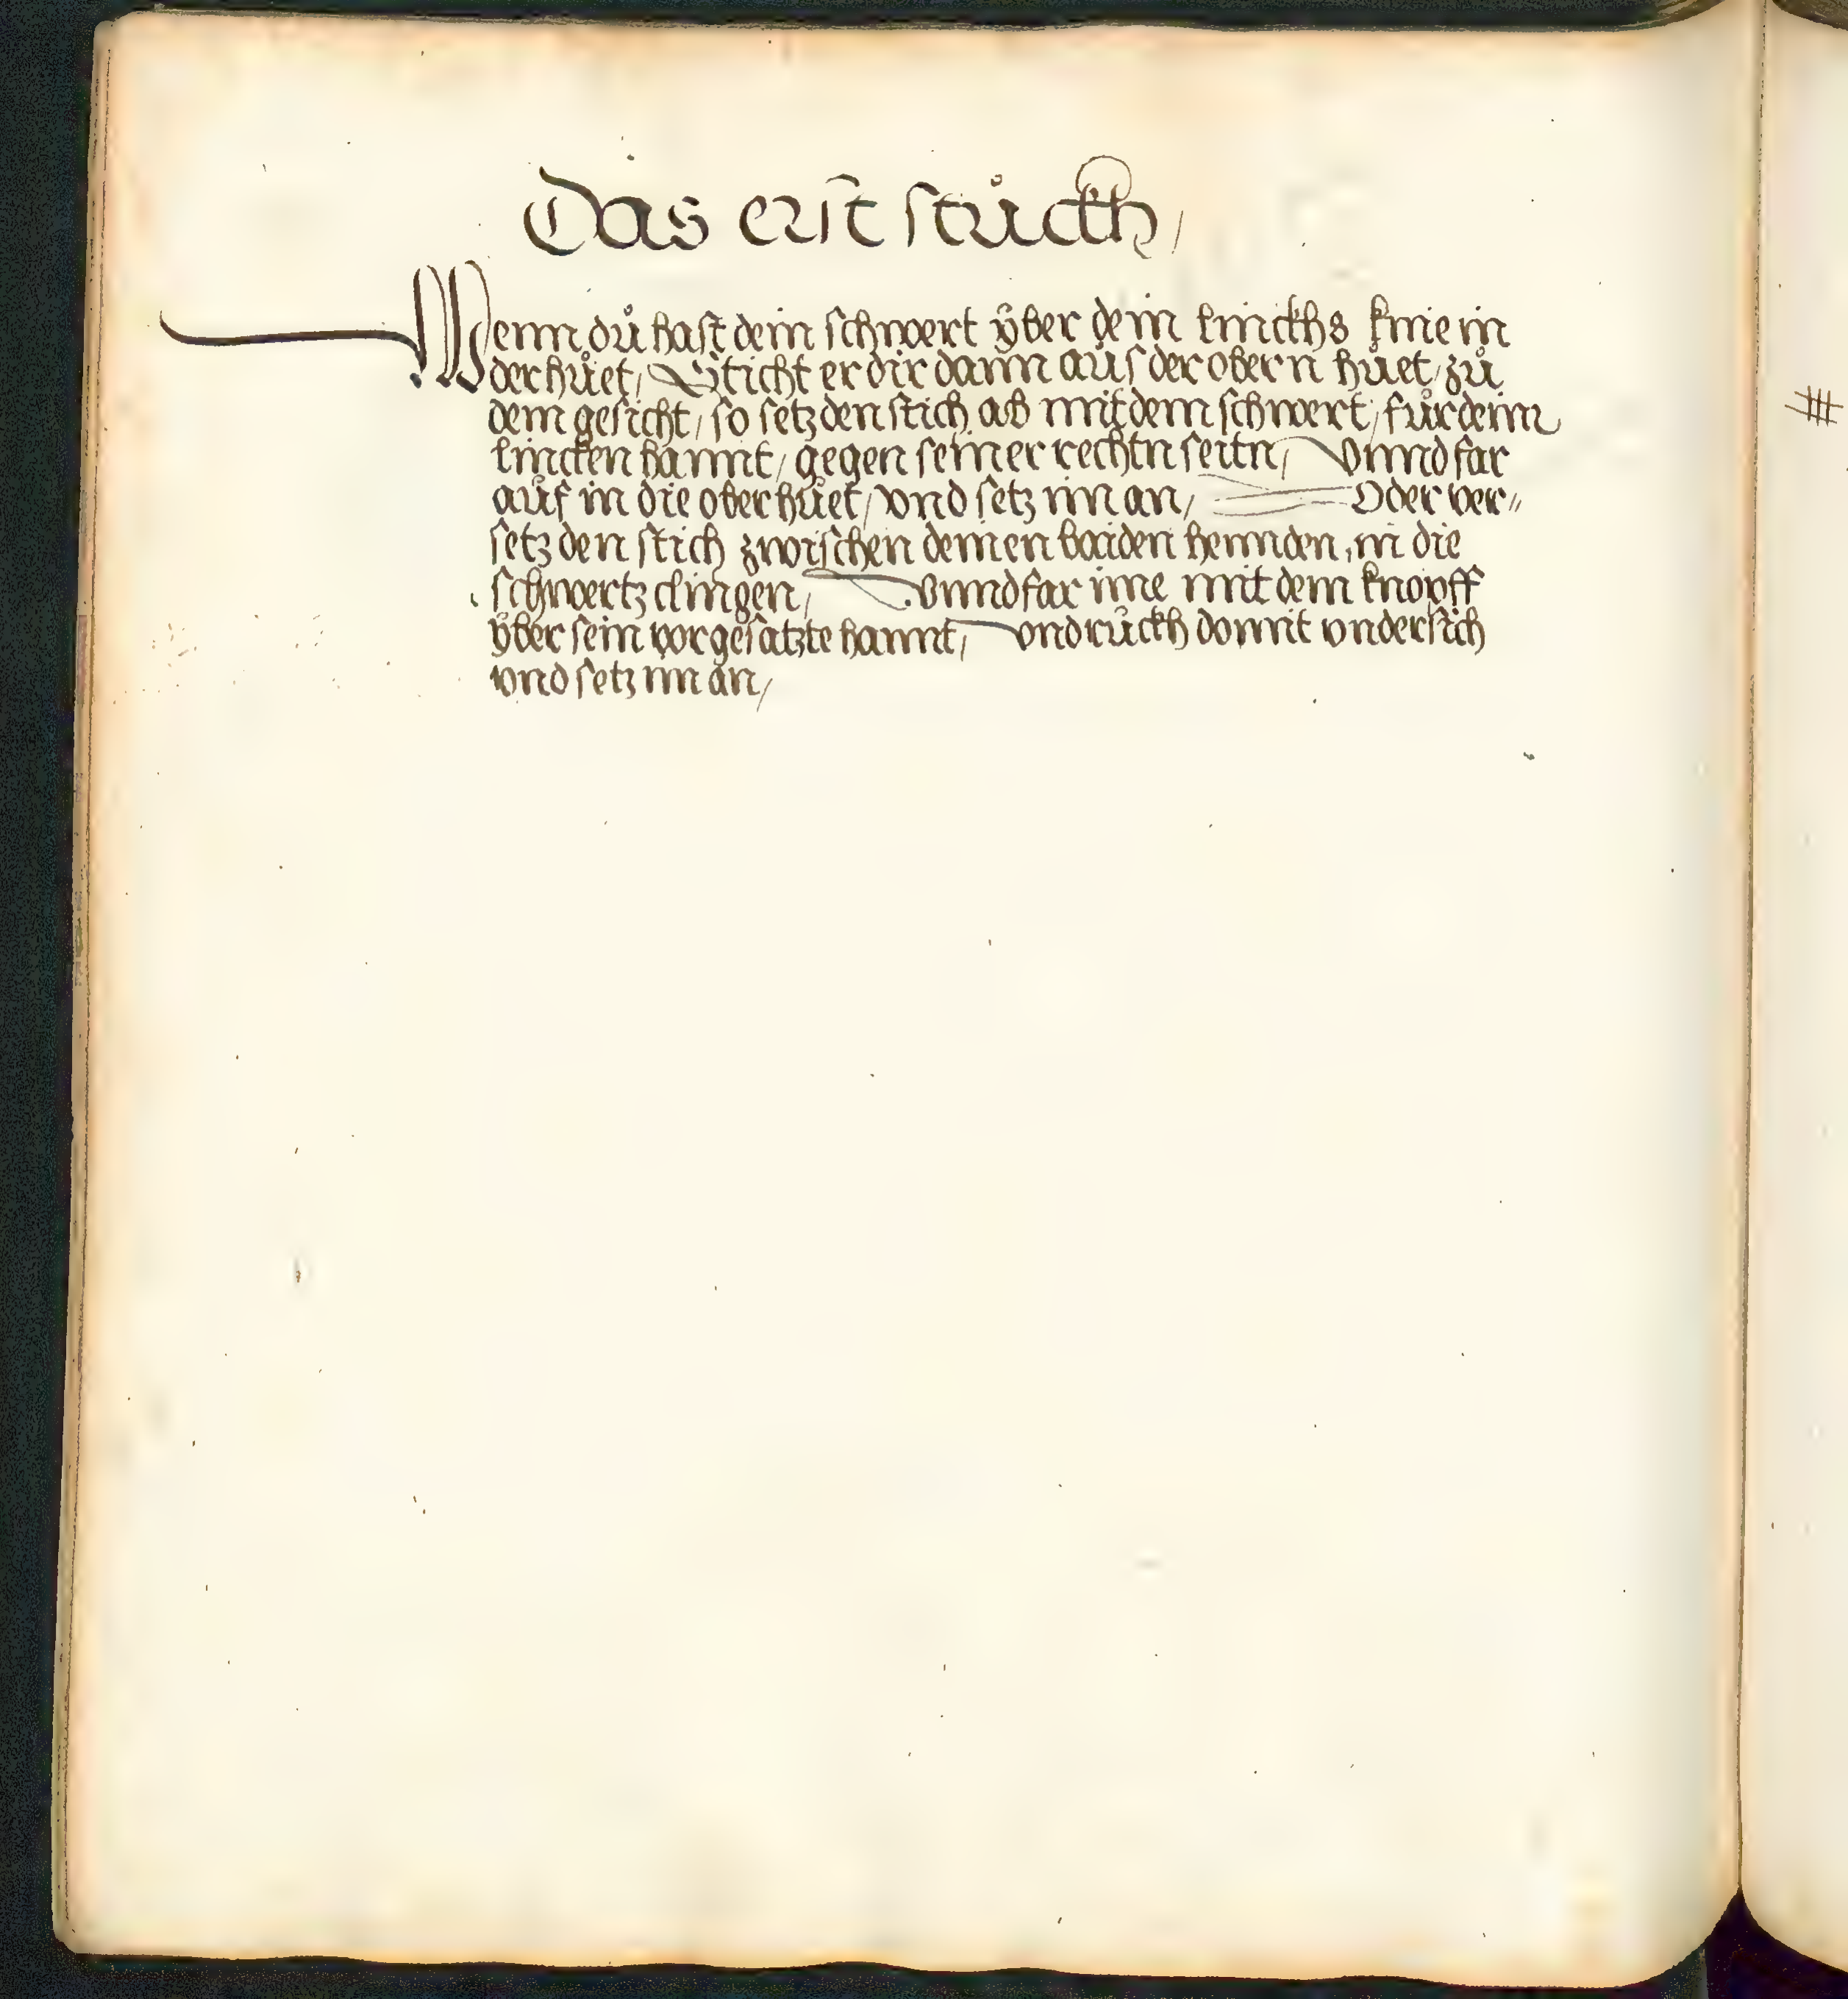 Das erst stuckh /
Wenn dů hast dein schwert ÿber dein linckhs knie in
der hůet / Sticht er dir dann aůs der obern hůet / zů
dem gesicht / so setz den stich ab mit dem schwert / fůr deinn
lincken hannt / gegen seiner rechtn seitn / Vnnd far
aůf in die ober hůet / vnd setz im an / Oder ver„
setz den stich zwischen deinen baiden hennden, in die
schwertz clingen / Vnnd far ime mit dem knopff
ÿber sein vorgesatzte hannt / vnd růckh domit vndersich
vnd setz im an /